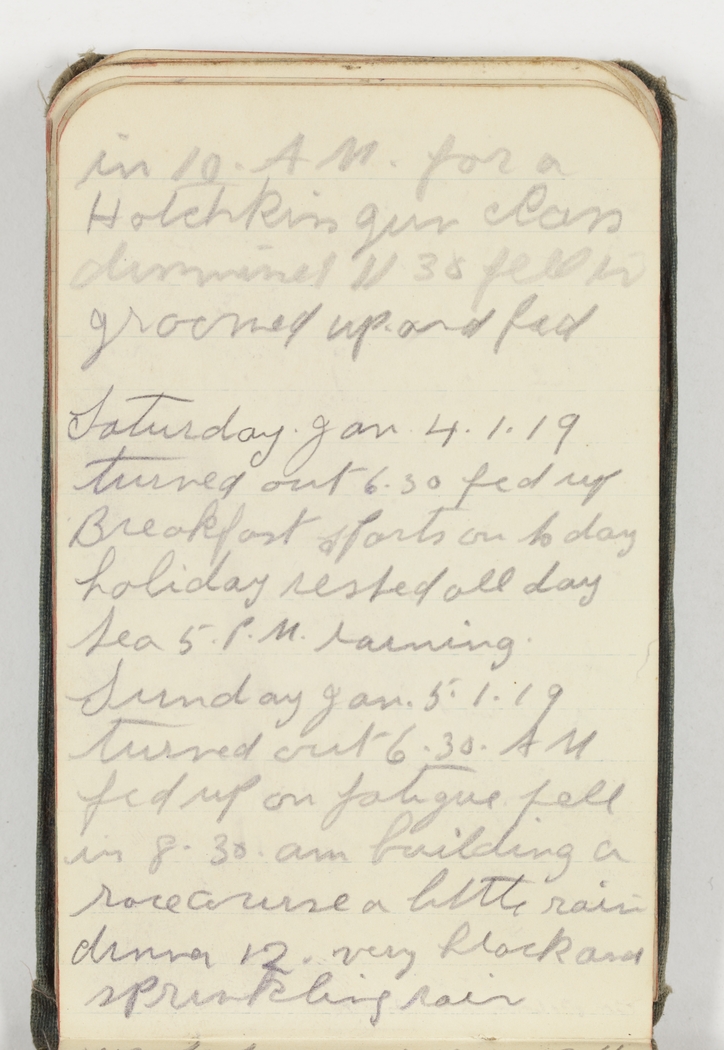 in 10. A M. for a
Hotchkiss gun class
dismissed 11 30 fell in
groomed up and fed
Saturday. Jan 4.1.19
turned out 6.30 fed up
Breakfast sports on to day
holiday rested all day
tea 5. P.M. raining.
Sunday Jan. 5.1.19
turned out 6.30. A M
fed up on fatigue fell
in 8.30. am building a
racecourse a little rain
dinner 12. very black and
sprinkling rain